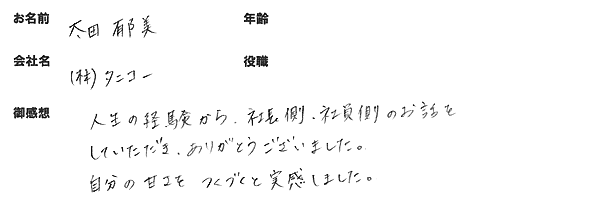 お名前 太田 郁美 年齢
会社名 (株)タニコー 役職
御感想 人生の経験から、社長側、社員側のお話を
していただき、ありがとうございました。
自分の甘さを つくづくと実感しました。